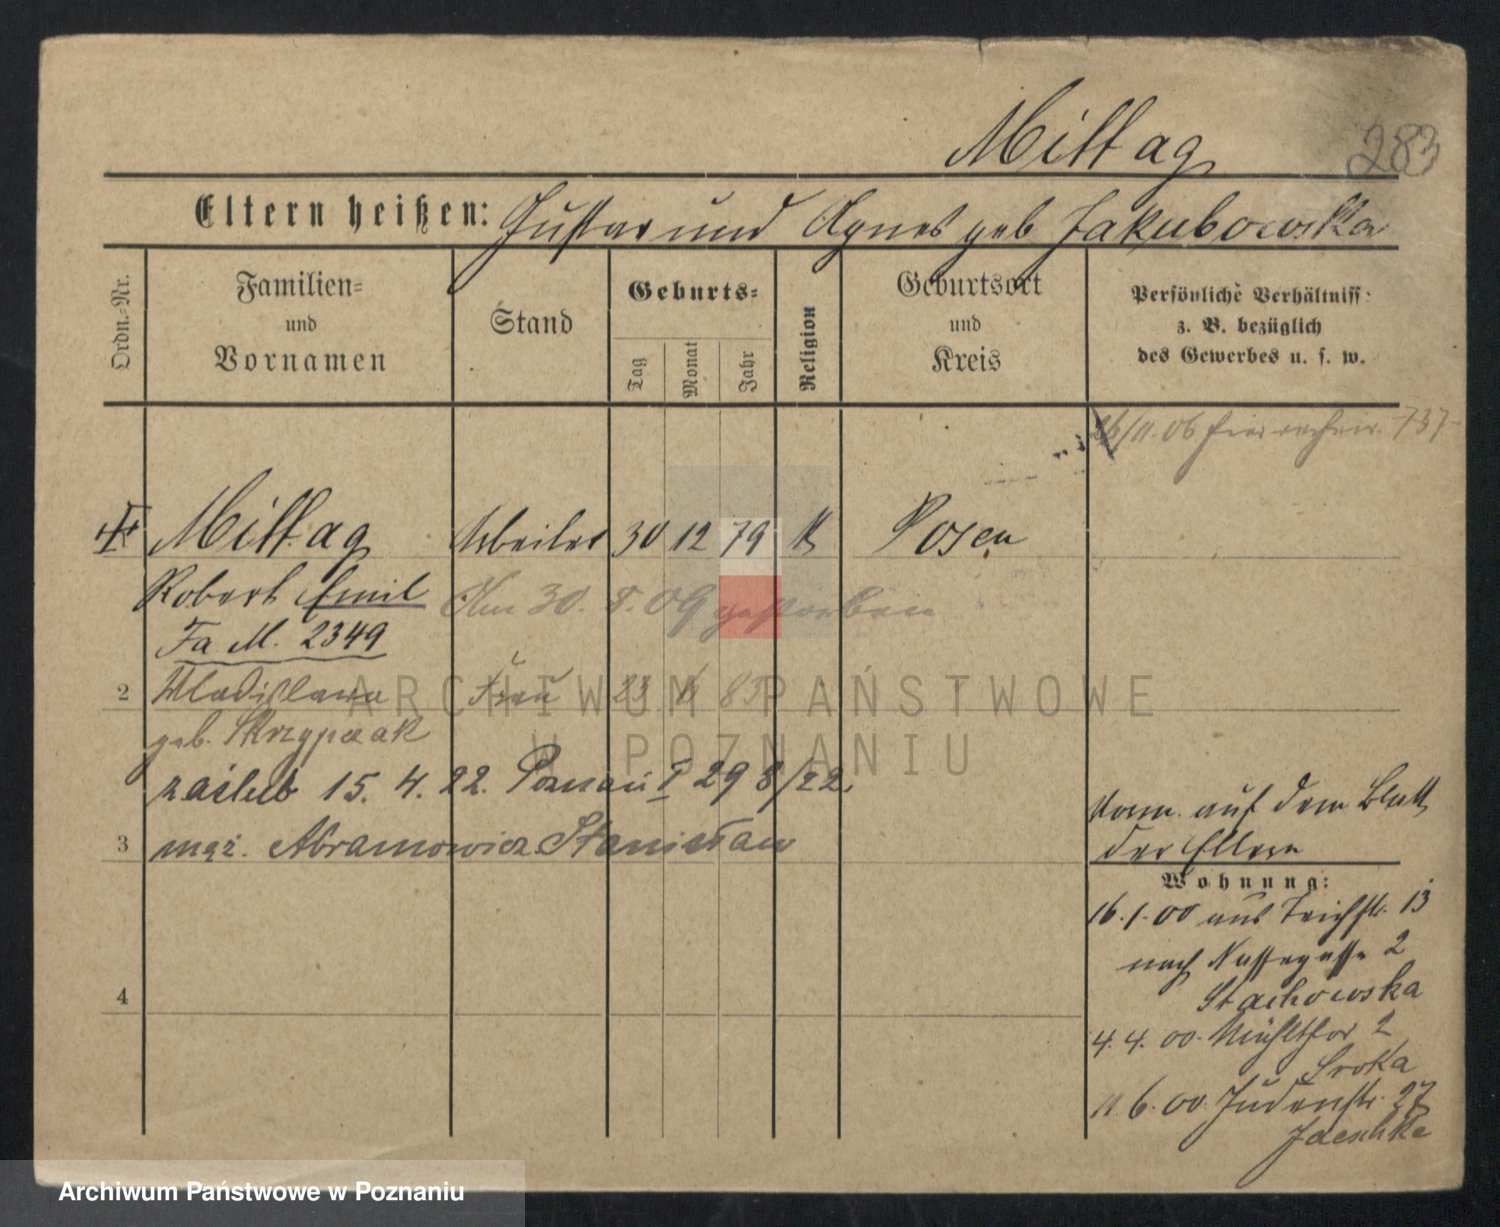 Mittag
283
Eltern heißen: Gustav und Agnes geb Jakubowska
Ordn.=Nr.
Familien= und Vornamen
Stand
Geburts=
Tag
Monat
Jahr
Religion
Geburtsort und Kreis
Persönliche Verhältniss
z. B. bezüglich
des Gewerbes u. s. w.
26/11. 06 737
Mittag Arbeiter 30 12 79 K Posen
Robert Emil Am 30. 5. 09 gestorben
Fa M. 2349
2 Wladislawa Frau 23 83
geb. Skrzypczak
zaślub 15. 4. 22. Poznań I 29 8/22.
3 mąż. Abramowicz Stanisław
4
Vorm. auf dem Blatt
der Eltern
Wohnung:
16. 1. 00 aus Teichstr. 13
nach Nassegasse 2
Stachowska
4. 4. 00. Mühlthor 2
Sroka
11. 6. 00. Judenstr. 27
Jaeschke
ARCHIWUM PAŃSTWOWE
W POZNANIU
Archiwum Państwowe w Poznaniu